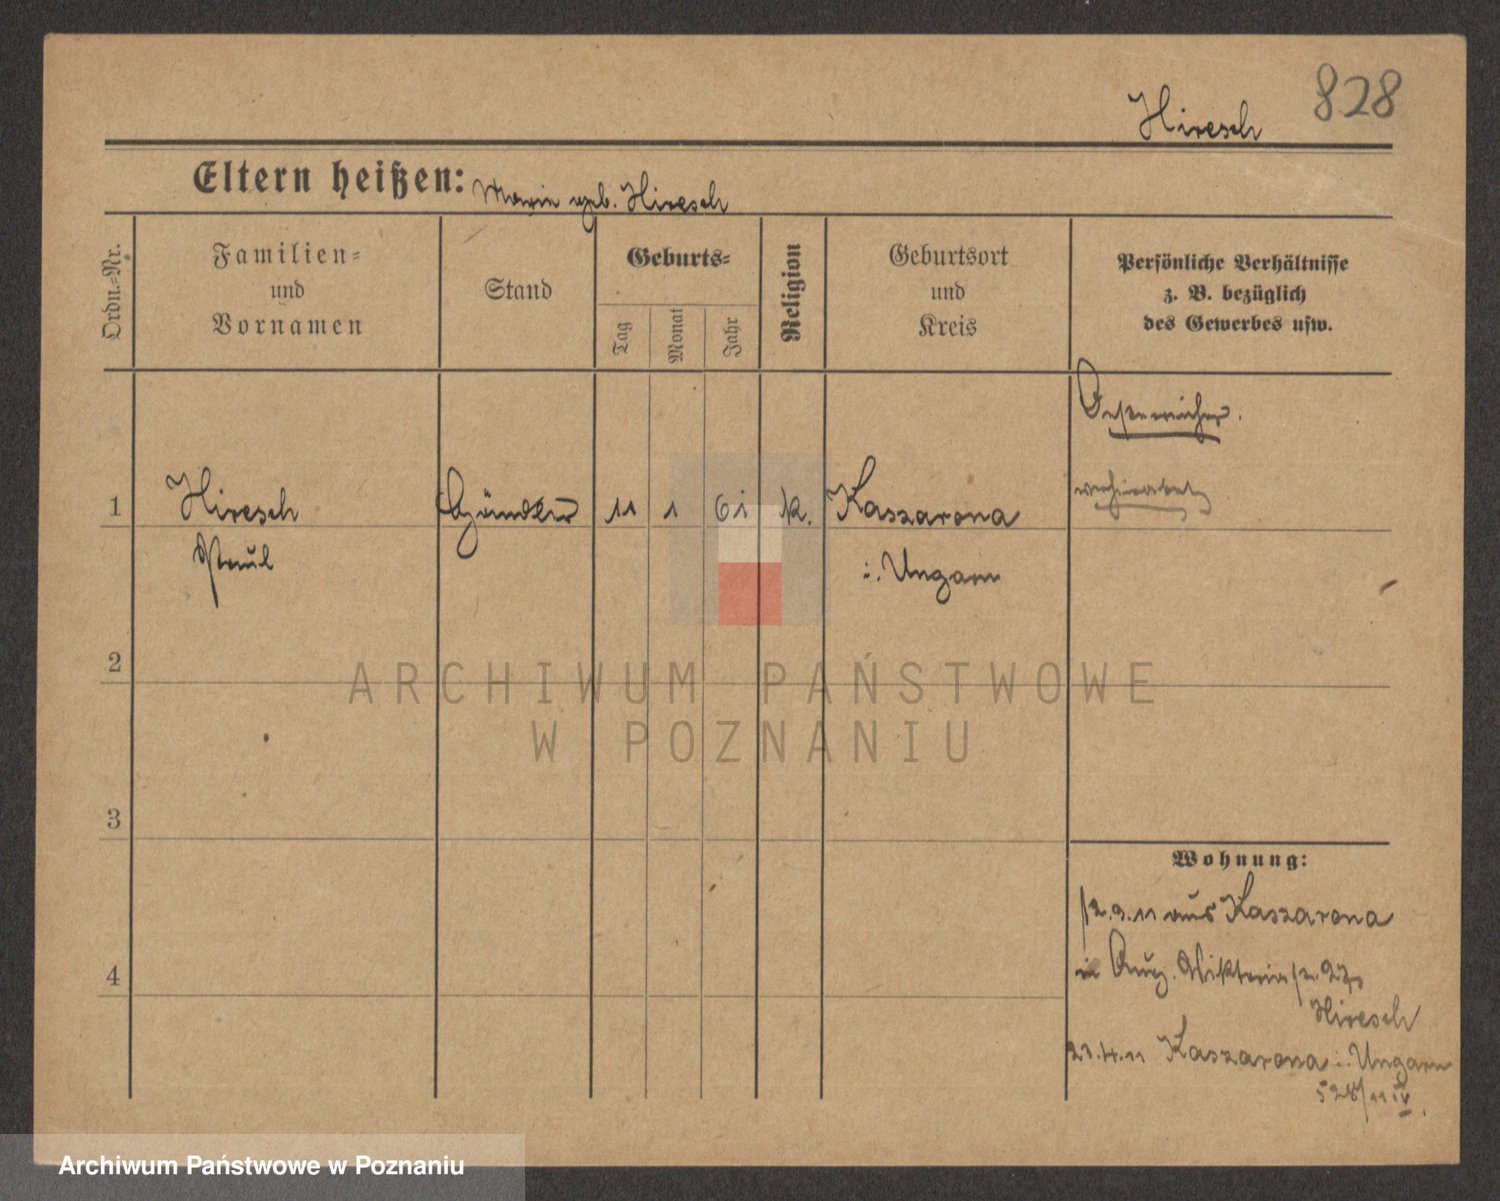 828
Hiresch
Eltern heißen: Maria geb. Hiresch
Ordn.-Nr.
Familien-
und
Vornamen
Stand
Geburts-
Tag
Monat
Jahr
Religion
Geburtsort
und
Kreis
Persönliche Verhältnisse
z. B. bezüglich
des Gewerbes usw.
Oesterreicher.
verheiratet
1 Hiresch Händler 11 1 61 k. Kaszarona
Paul i. Ungarn
2
3
4
Wohnung:
12.3.11 aus Kaszarona
in Aug. Viktoria 27
Hiresch
23.4.11 Kaszarona i. Ungarn
528/11 IV.
ARCHIWUM PAŃSTWOWE
W POZNANIU
Archiwum Państwowe w Poznaniu